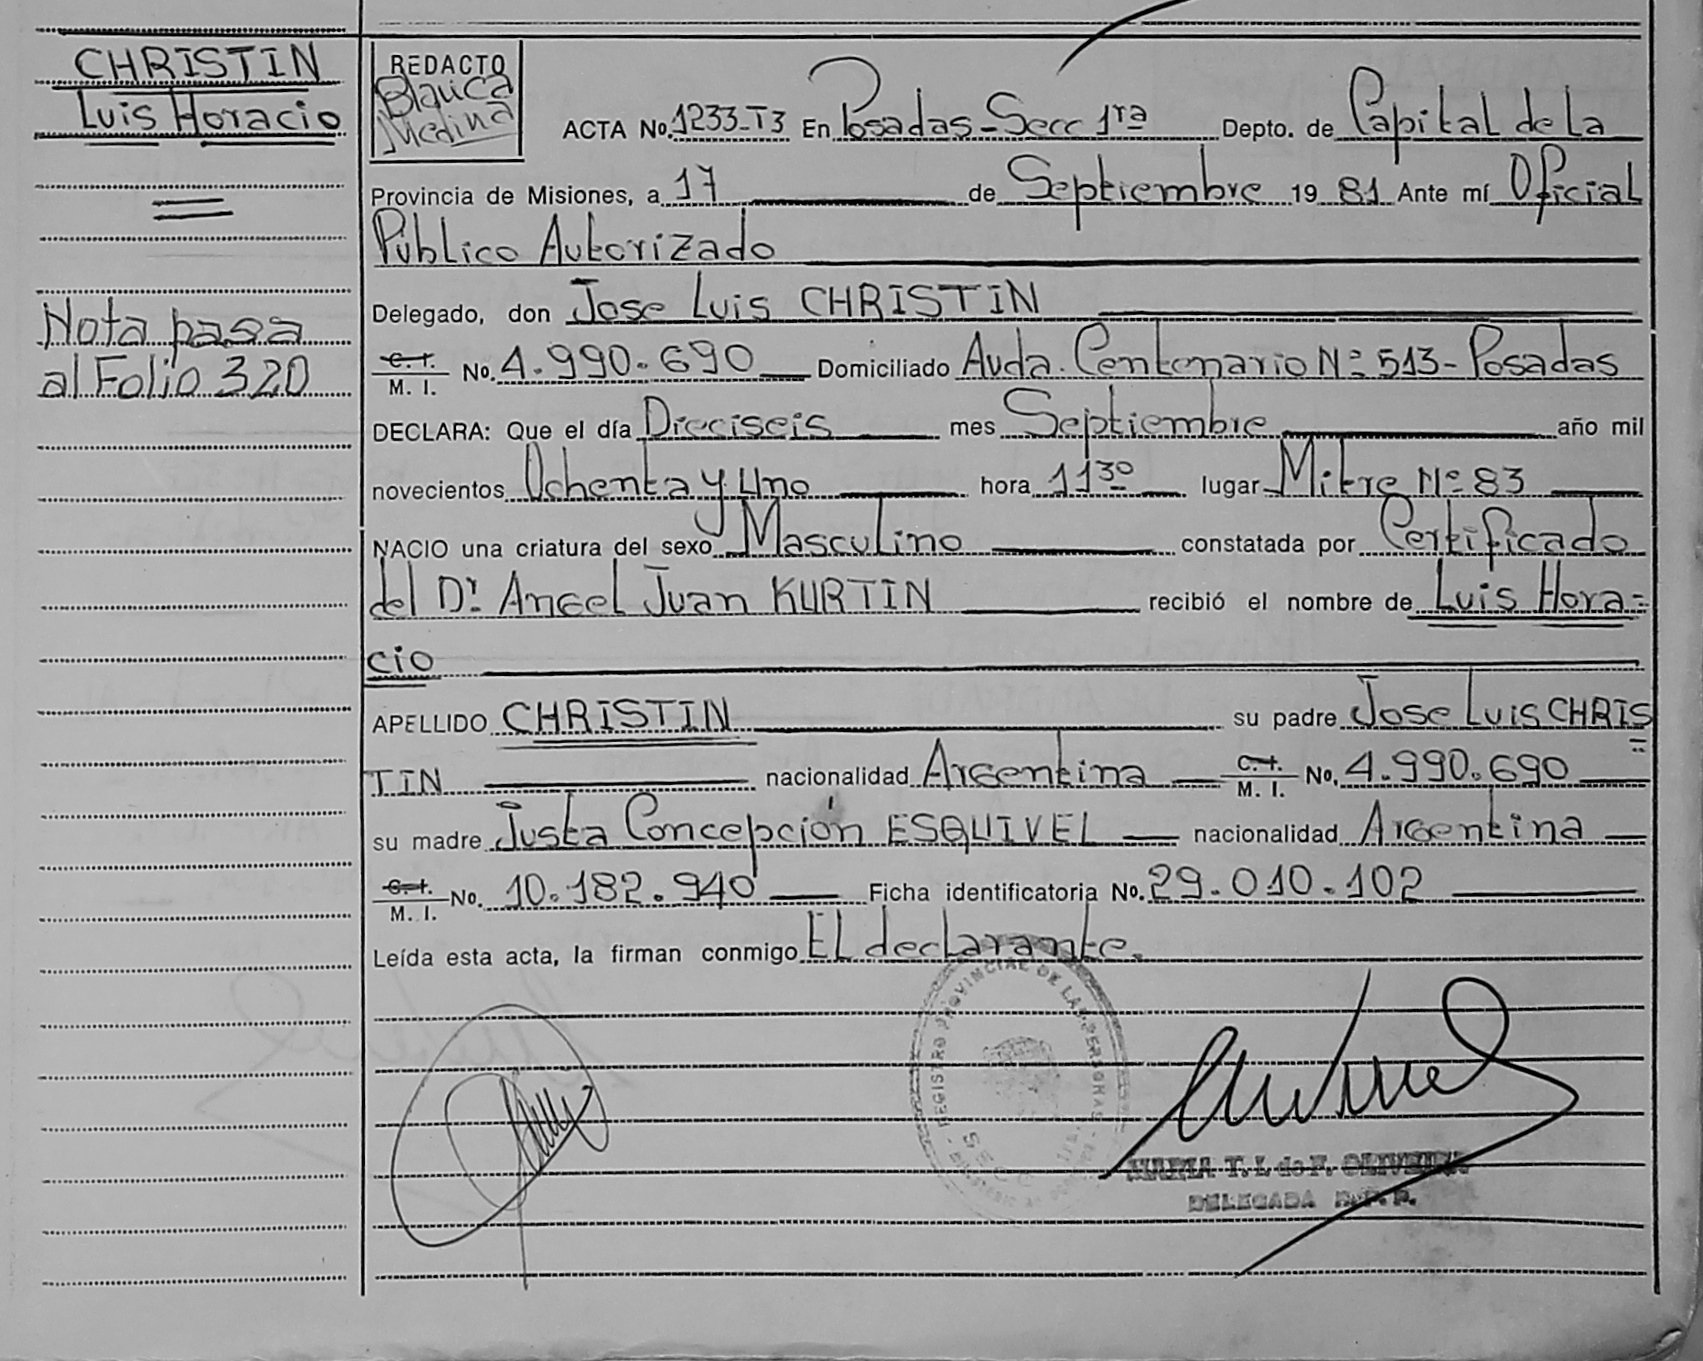 CHRISTIN
Luis Horacio
Nota pasa
al Folio 320
REDACTO
Blanca
Medina
ACTA No. 1233-T3 En Posadas-Secc 1ra Depto. de Capital de la
Provincia de Misiones, a 17 de Septiembre 19 81 Ante mí Oficial
Público Autorizado
Delegado, don Jose Luis CHRISTIN
C. I.
M. I. No. 4.990.690 Domiciliado Avda. Centenario Nº 513-Posadas
DECLARA: Que el día Dieciseis mes Septiembre año mil
novecientos Ochenta y Uno hora 11 30 lugar Mitre Nº 83
NACIO una criatura del sexo Masculino constatada por Certificado
del Dr. Angel Juan KURTIN recibió el nombre de Luis Hora=
cio
APELLIDO CHRISTIN su padre Jose Luis CHRIS=
TIN nacionalidad Argentina C. I.
M. I. No. 4.990.690
su madre Justa Concepción ESQUIVEL nacionalidad Argentina
C. I.
M. I. No. 10.182.940 Ficha identificatoria No. 29.010.102
Leída esta acta, la firman conmigo El declarante.
REGISTRO PROVINCIAL DE LAS PERSONAS
MARIA T. I. de F. OLIVEIRA
DELEGADA R.P.P.